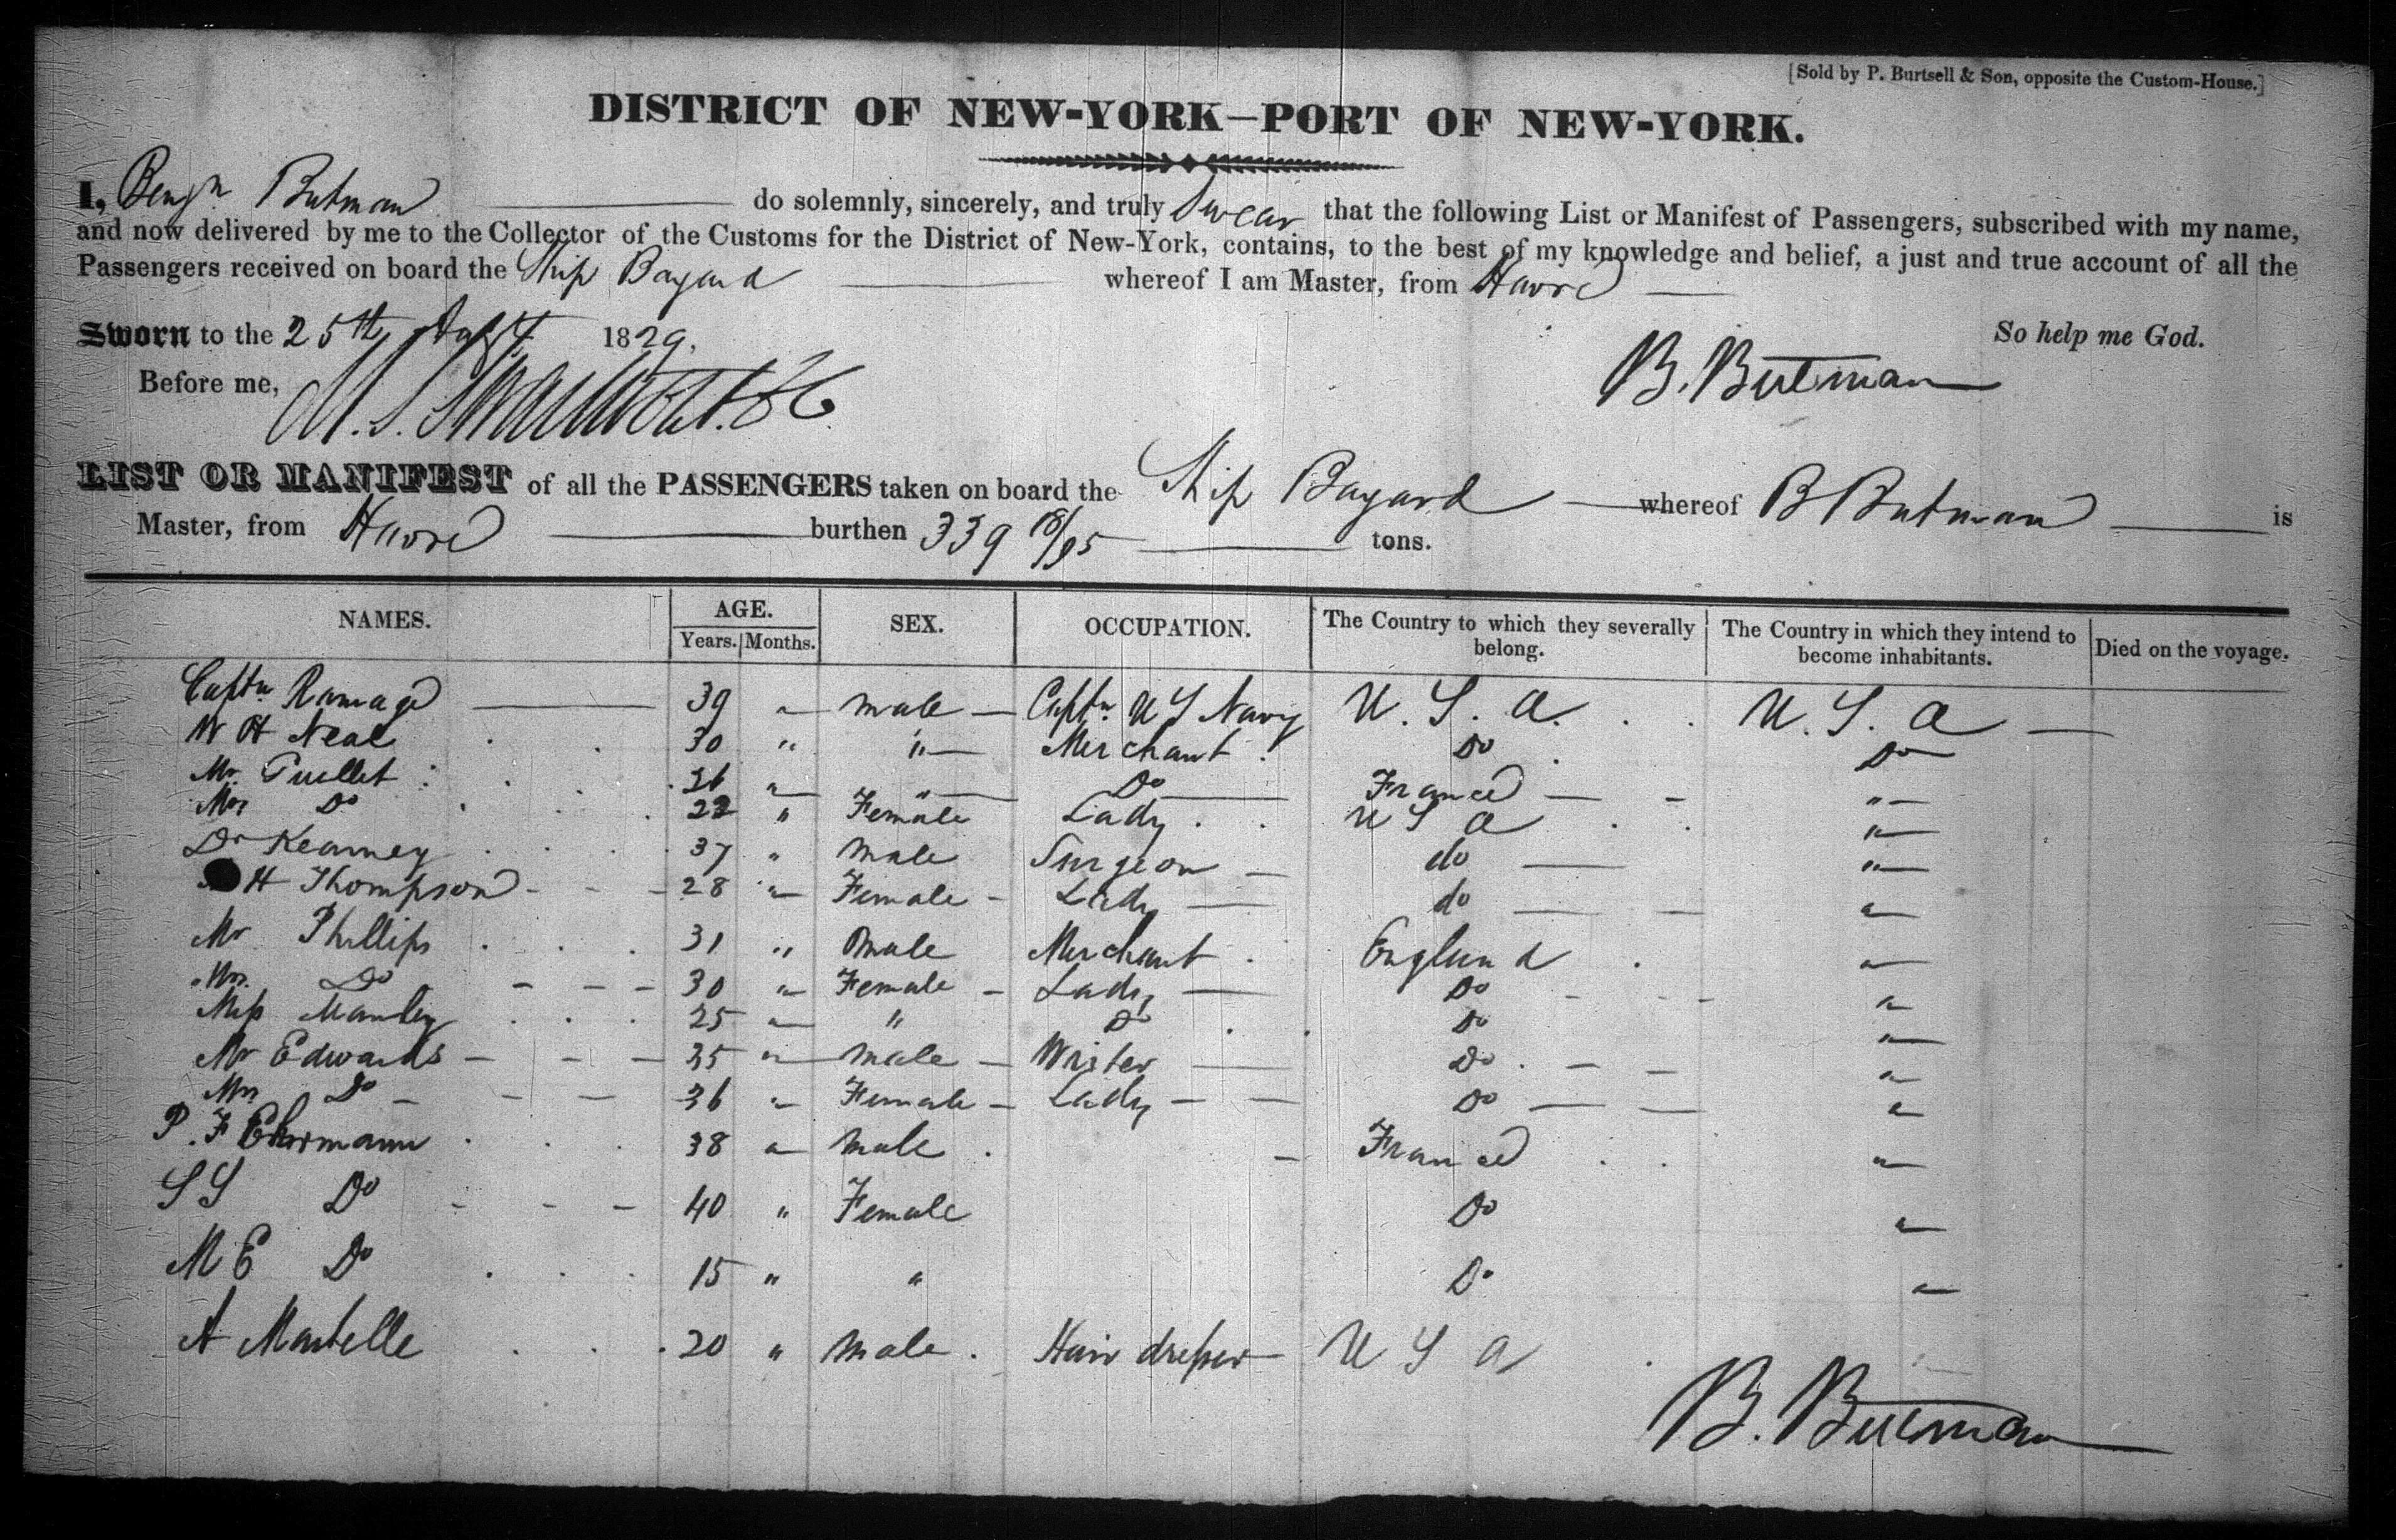 [Sold by P. Burtsell & Son, opposite the Custom-House.]
DISTRICT OF NEW-YORK—PORT OF NEW-YORK.
I, Benjn Butman do solemnly, sincerely, and truly Swear that the following List or Manifest of Passengers, subscribed with my name,
and now delivered by me to the Collector of the Customs for the District of New-York, contains, to the best of my knowledge and belief, a just and true account of all the
Passengers received on board the Ship Bayard whereof I am Master, from Havre
So help me God.
Sworn to the 25th 1829.
Before me,
B. Butman
LIST OR MANIFEST of all the PASSENGERS taken on board the Ship Bayard whereof B Butman is
Master, from Havre burthen 339 /95 tons.
NAMES. AGE. Years. Months. SEX. OCCUPATION. The Country to which they severally belong. The Country in which they intend to become inhabitants. Died on the voyage.
Captn Ramage 39 " male Captn U S Navy U. S. A. U. S. A
W H Neal 30 " " Merchant Do Do
Mr. " " Do France "
Mrs Do 22 " Female Lady U S A "
Dr Kearney 37 " male Surgeon do "
H Thompson 28 " Female Lady do "
Mr Phillips 31 " male Merchant England "
Mrs. Do 30 " Female Lady Do "
Miss Manley 25 " " Do Do "
Mr Edwards 35 " male Writer Do "
Mrs Do 36 " Female Lady Do "
P. F Ehrmann 38 " male France "
S S Do 40 " Female Do "
M E Do 15 " " Do "
A Martelle 20 " male Hair dresser U S A
B. Butman